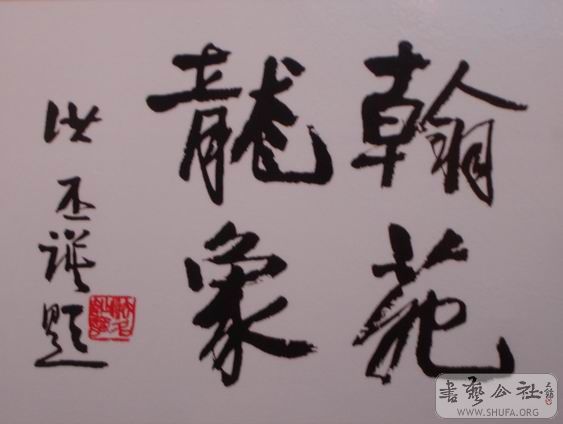 翰苑
龍象
洪丕謨題
書藝公社
WWW.SHUFA.ORG